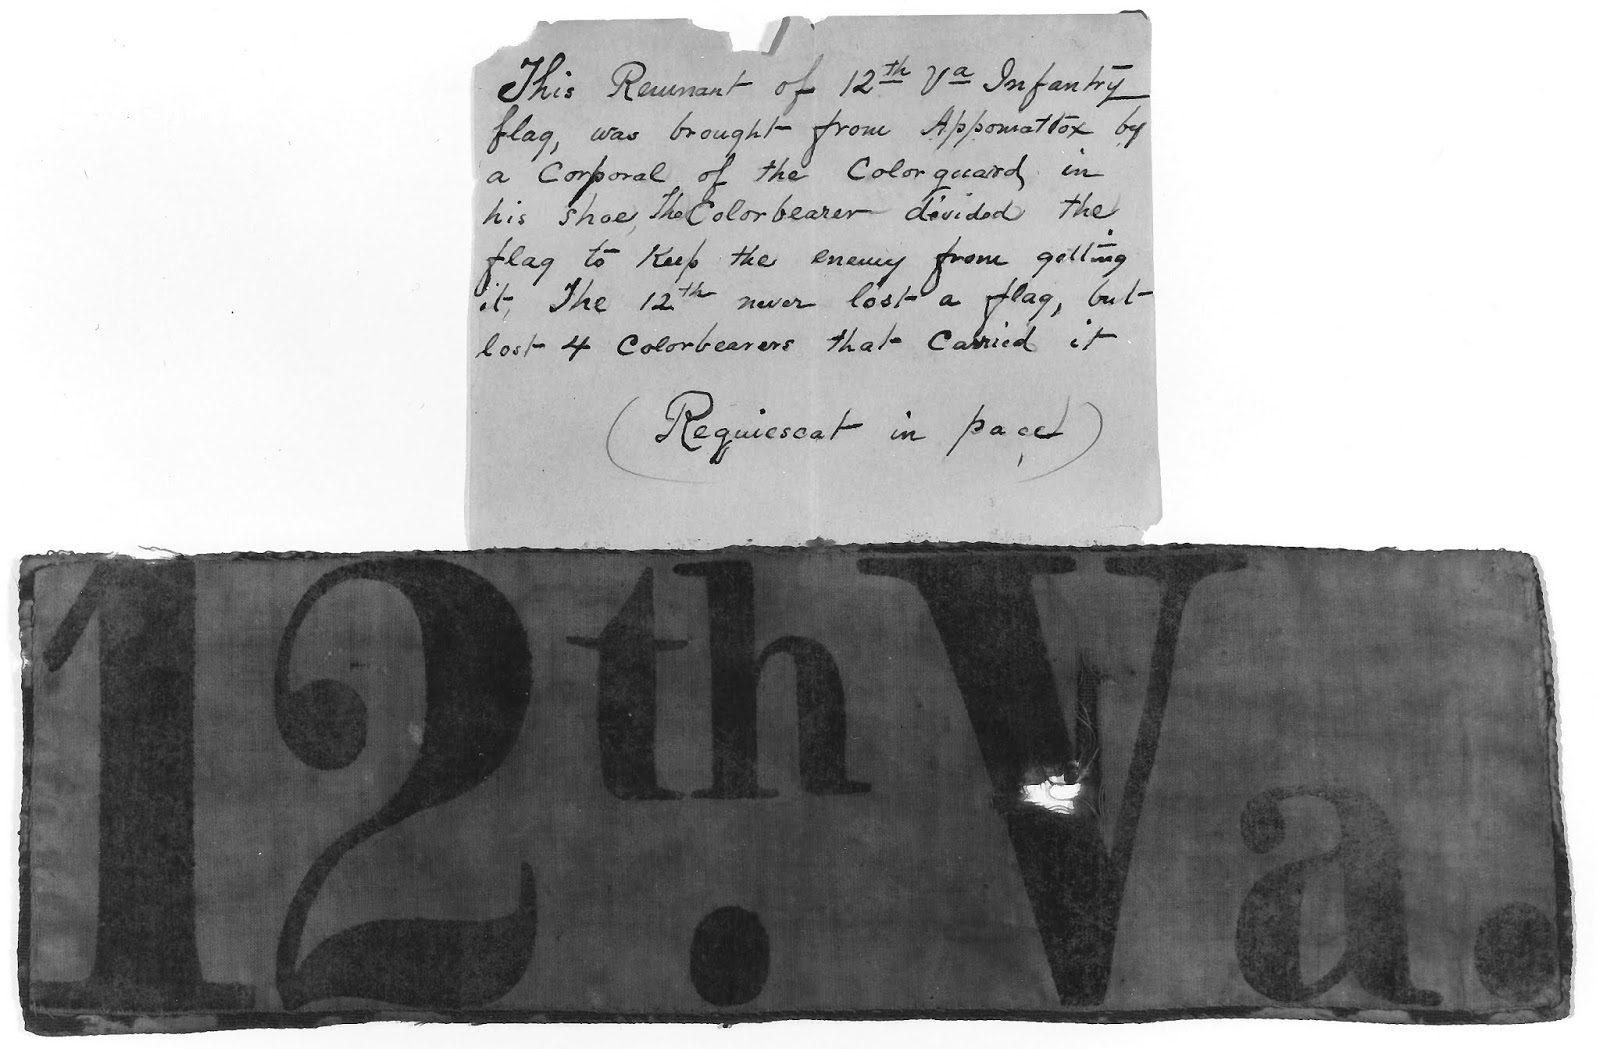 This Remnant of 12th Va Infantry
flag, was brought from Appomattox by
a Corporal of the Colorguard, in
his shoe, The Colorbearer divided the
flag to Keep the enemy from getting
it, The 12th never lost a flag, but
lost 4 Colorbearers that Carried it
(Requiescat in pace)
12th. Va.